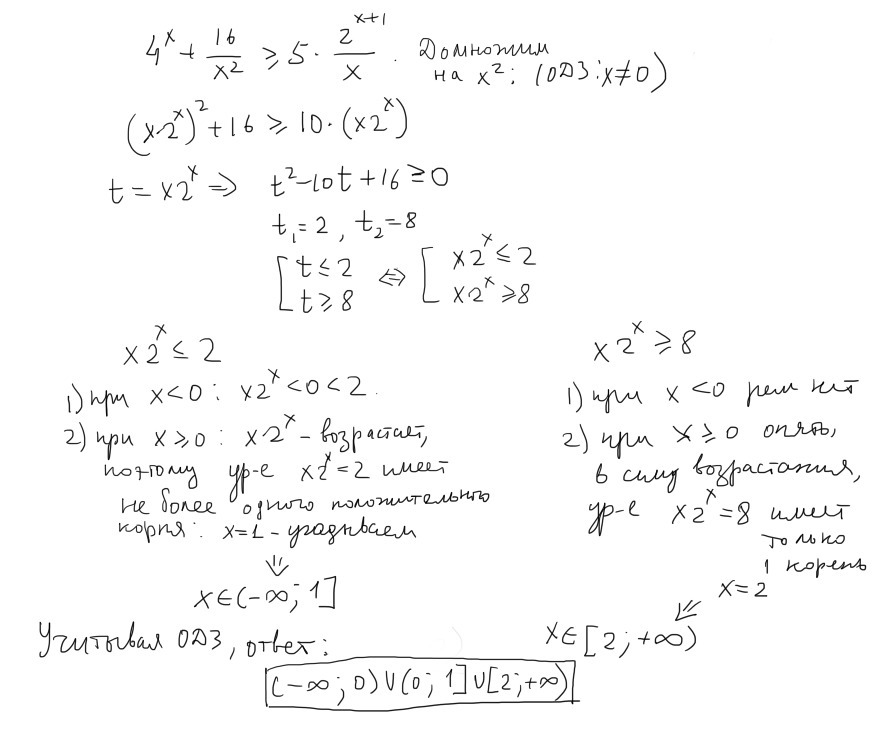 4^x + 16/x² ≥ 5 · 2^(x+1)/x. Домножим
на x²: (ОДЗ: x≠0)
(x·2^x)² + 16 ≥ 10·(x2^x)
t = x2^x ⇒ t² - 10t + 16 ≥ 0
t₁ = 2, t₂ = 8
[ t ≤ 2 ⇔ [ x2^x ≤ 2
t ≥ 8 x2^x ≥ 8
x2^x ≤ 2
1) при x < 0: x2^x < 0 < 2.
2) при x ≥ 0: x·2^x - возрастает,
поэтому ур-е x2^x = 2 имеет
не более одного положительного
корня: x = 1 - угадываем
⇓
x ∈ (-∞; 1]
x2^x ≥ 8
1) при x < 0 реш нет
2) при x ≥ 0 опять,
в силу возрастания,
ур-е x2^x = 8 имеет
только
1 корень
x = 2
⇙
x ∈ [2; +∞)
Учитывая ОДЗ, ответ:
(-∞; 0) ∪ (0; 1] ∪ [2; +∞)